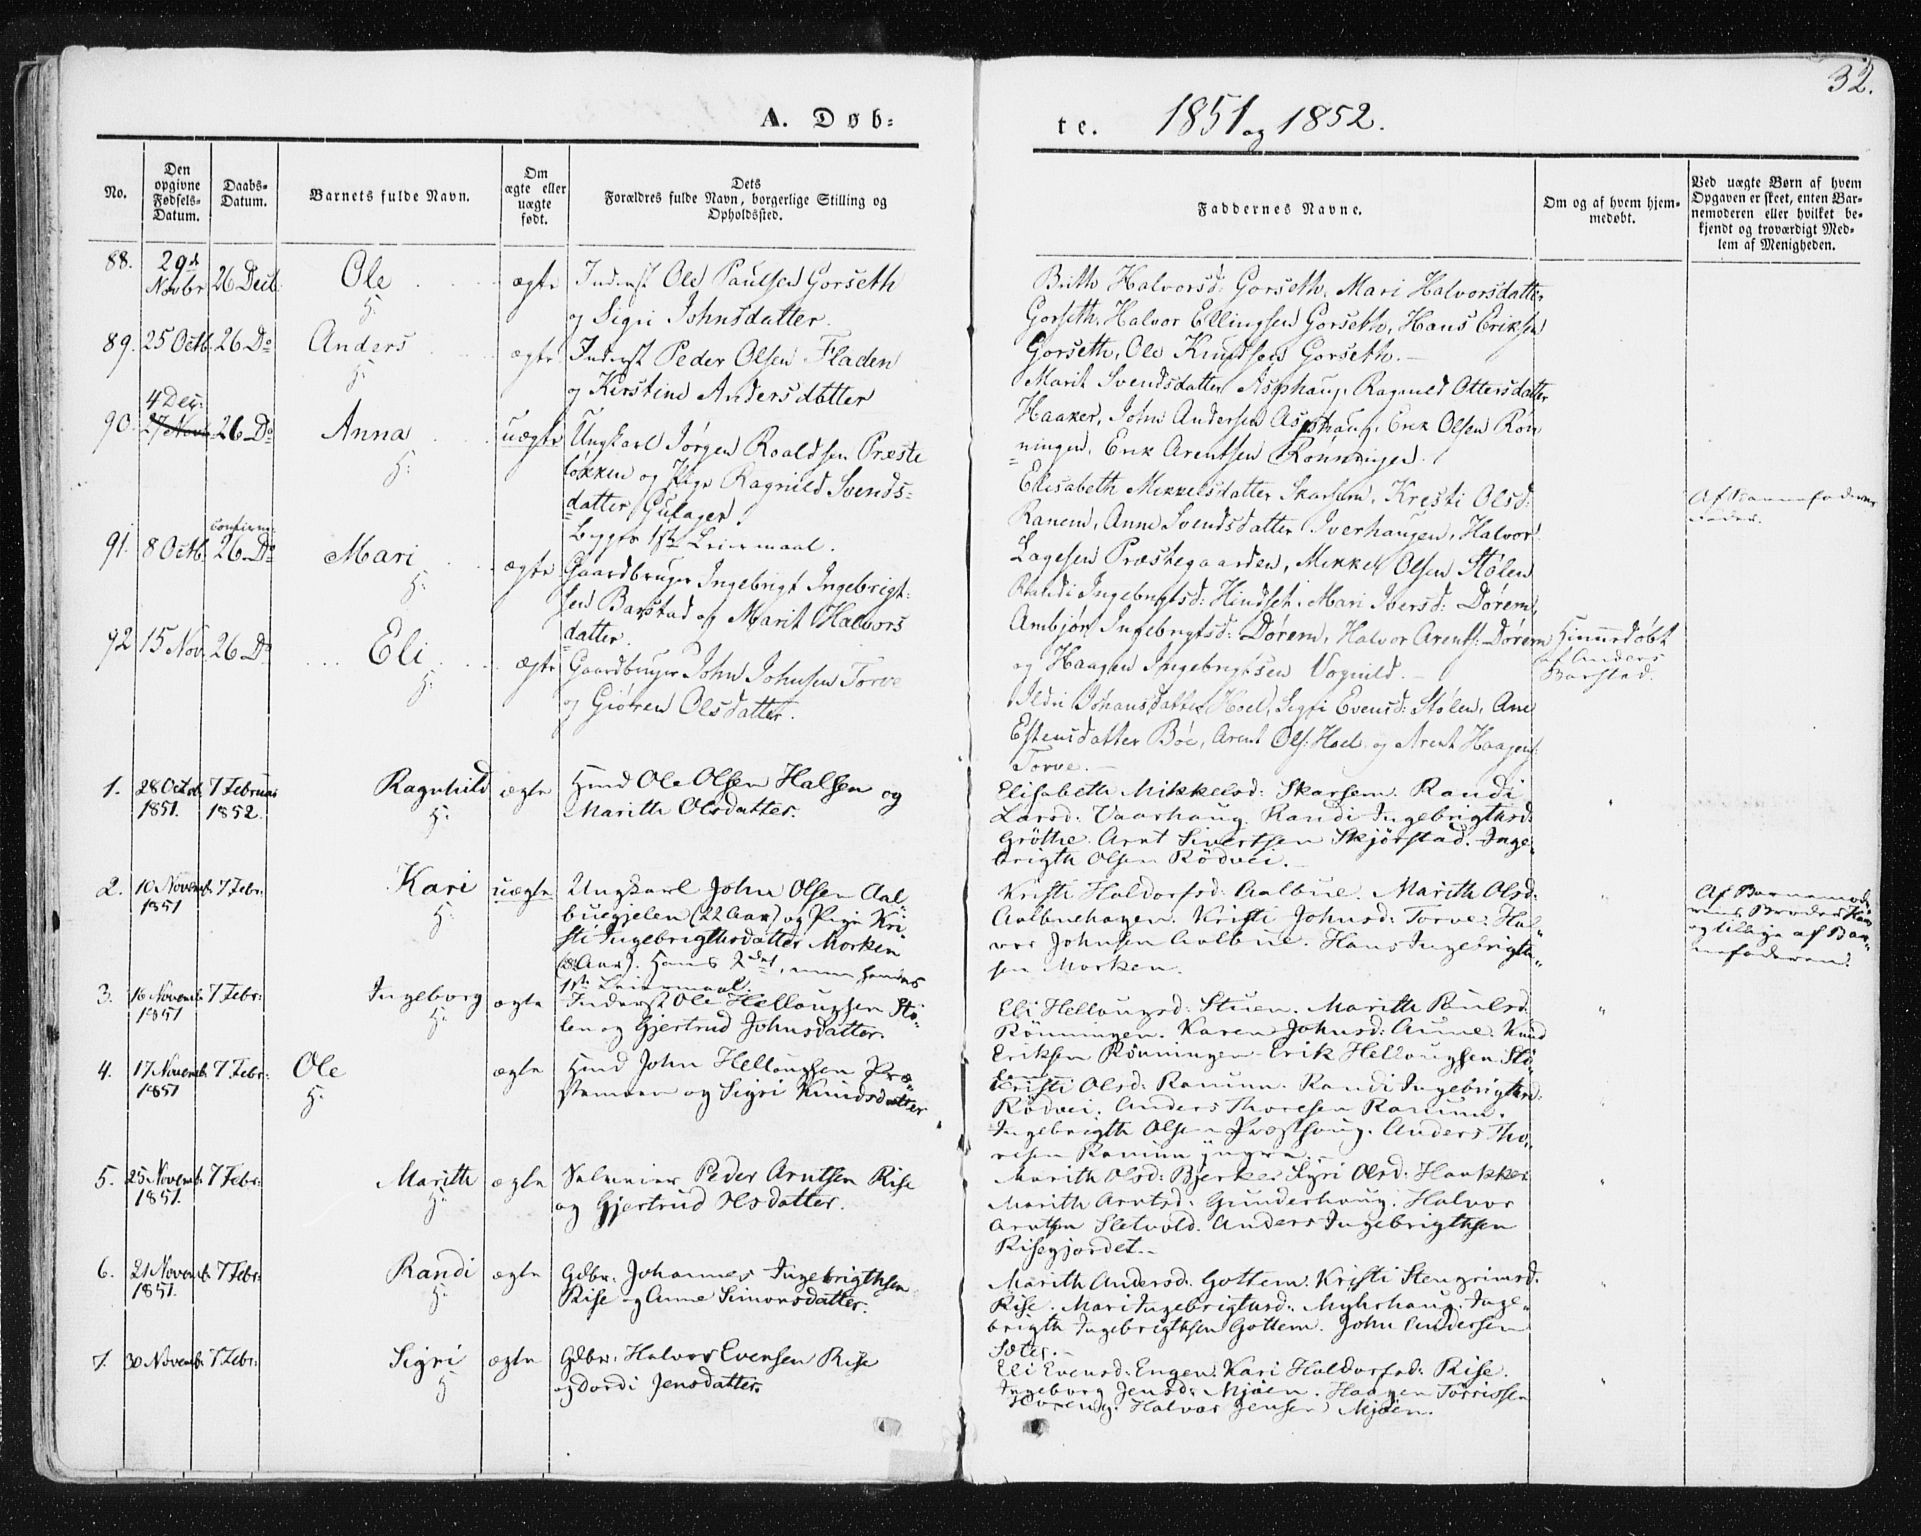 32.
A. Døb-
te. 1851 og 1852.
No.
Den
opgivne
Fødsels-
Datum.
Daabs-
Datum.
Barnets fulde Navn.
Om
ægte eller
uægte
født.
Dets
Forældres fulde Navn, borgerlige Stilling og
Opholdssted.
Faddernes Navne.
Om og af hvem hjem-
medøbt.
Ved uægte Børn af hvem
Opgaven er skeet, enten Bar-
nemoderen eller hvilket be-
kjendt og troværdigt Med-
lem af Menigheden.
88. 29d Novbr 26 Decb. Ole H: ægte Inderst Ole Paulsen Gorseth
og Sigri Johnsdatter.
Brith Halvorsd: Gorseth, Mari Halvorsdatter
Gorseth, Halvor Ellingsen Gorseth, Hans Eriksen
Gorseth, Ole Knudsen Gorseth.
89. 25 Octb. 26 Do Anders H: ægte Inderst Peder Olsen Fladen
og Kirstine Andersdatter
Marit Svendsdatter Asphaug, Ragnild Ottersdatter
Haaker, John Andersen Asphaug, Erik Olsen Røn
ningen, Erik Arentsen Rønningen.
90. 4 Dec: 27 Nov. 26 Do Anna H: uægte Ungkarl Jørgen Roaldsen Præste
løkken og Pige Ragnild Svends=
datter Gulager.
Begges 1ste Leiermaal.
Elisabeth Mikkelsdatter Skarsem, Kresti Olsd:
Ranem, Anne Svendsdatter Iverhaugen, Halvor
Lagesen Præstegaarden, Mikkel Olsen Stølen
Af Barnefaderens
Fader.
91. 8 Octb. 26 Do Mari H: ægte Gaardbruger Ingebrigt Ingebrigt=
sen Barstad og Marit Halvors
datter.
Randi Ingebrigtsd: Hindseth, Mari Iversd: Dørem,
Ambjør Ingebrigtsd: Dørem, Halvor Arents: Dørem
og Haagen Ingebrigtsen Vognild.
Hjemmedøbt
af Anders
Barstad.
92 15 Nov. 26 Do Eli H: ægte Gaardbruger John Johnsen Torve
og Giøren Olsdatter.
Ildri Johansdatter Hoel, Sigri Evensd: Stølen, Ane
Estensdatter Böe, Arent Ols: Hoel og Arent Haagens:
Torve.
1. 28 Octob. 1851. 7 Februar 1852. Ragnhild H: ægte Hmd Ole Olsen Halsen og
Marith Olsdatter.
Elisabeth Mikkelsd: Skarsem. Randi
Larsd: Vaarhaug. Randi Ingebrigthsd:
Gröthe. Arnt Sivertsen Skjörstad. Inge=
brigth Olsen Rödvei.
2. 10 Novemb. 1851 7 Febr: Kari H: uægte Ungkarl John Olsen Aal=
buegjelen (22 Aar) og Pige Kri=
sti Ingebrigthsdatter Morken
Hans 2det, men hendes
1ste Leiermaal.
Kristi Haldorsd: Aalbue. Marith Olsd:
Aalbuehagen. Kristi Johnsd: Torve. Hal=
vor Johnsen Aalbue. Hans Ingebrigth=
sen Morken.
Af Barnemod=
erens Broder Hans
og tillige af Bar=
nefaderen.
3. 16 Novemb. 1851 7 Febr: Ingeborg H: ægte Inderst Ole Hellaugsen Stö=
len og Gjertrud Johnsdatter.
Eli Hellaugsd: Stuen. Marith Paulsd:
Rönningen. Karen Johnsd: Aune. Knud
Eriksen Rönningen. Erik Hellaugsen Stö=
len.
4. 17 Novemb. 1851 7 Febr: Ole H: ægte Hmd John Hellaugsen Præ=
stemoen og Sigri Knudsdatter
Kristi Olsd: Ranum. Randi Ingebrigthsd:
Rödvei. Anders Thoresen Ranum.
Ingebrigth Olsen Præsthaug. Anders Tho=
resen Ranum yngre.
5. 25 Novemb. 1851. 7 Febr: Marith H: ægte Selveier Peder Arntsen Rise
og Gjertrud Olsdatter.
Marith Olsd: Bjerke. Sigri Olsd: Haakker
Marith Arntsd: Gunderhaug. Halvor
Arntsen Sletvold. Anders Ingebrigthsen
Risegjordet.
6. 21 Novemb. 1851. 7 Febr: Randi H: ægte Gdbr: Johannes Ingebrigthsen
Rise og Anne Simonsdatter.
Marith Andersd: Gottem. Kristi Stengrimsd:
Rise. Mari Ingebrigthsd: Myhrhaug. Inge=
brigth Ingebrigthsen Gottem. John Andersen
Sæter.
7. 30 Novemb. 7 Febr: Sigri H: ægte Gdbr: Halvor Evensen Rise
og Dordi Jensdatter.
Eli Evensd: Engen. Kari Haldorsd: Rise.
Ingeborg Jensd: Mjöen. Haagen Törrissen
Halvor Jensen Mjöen.